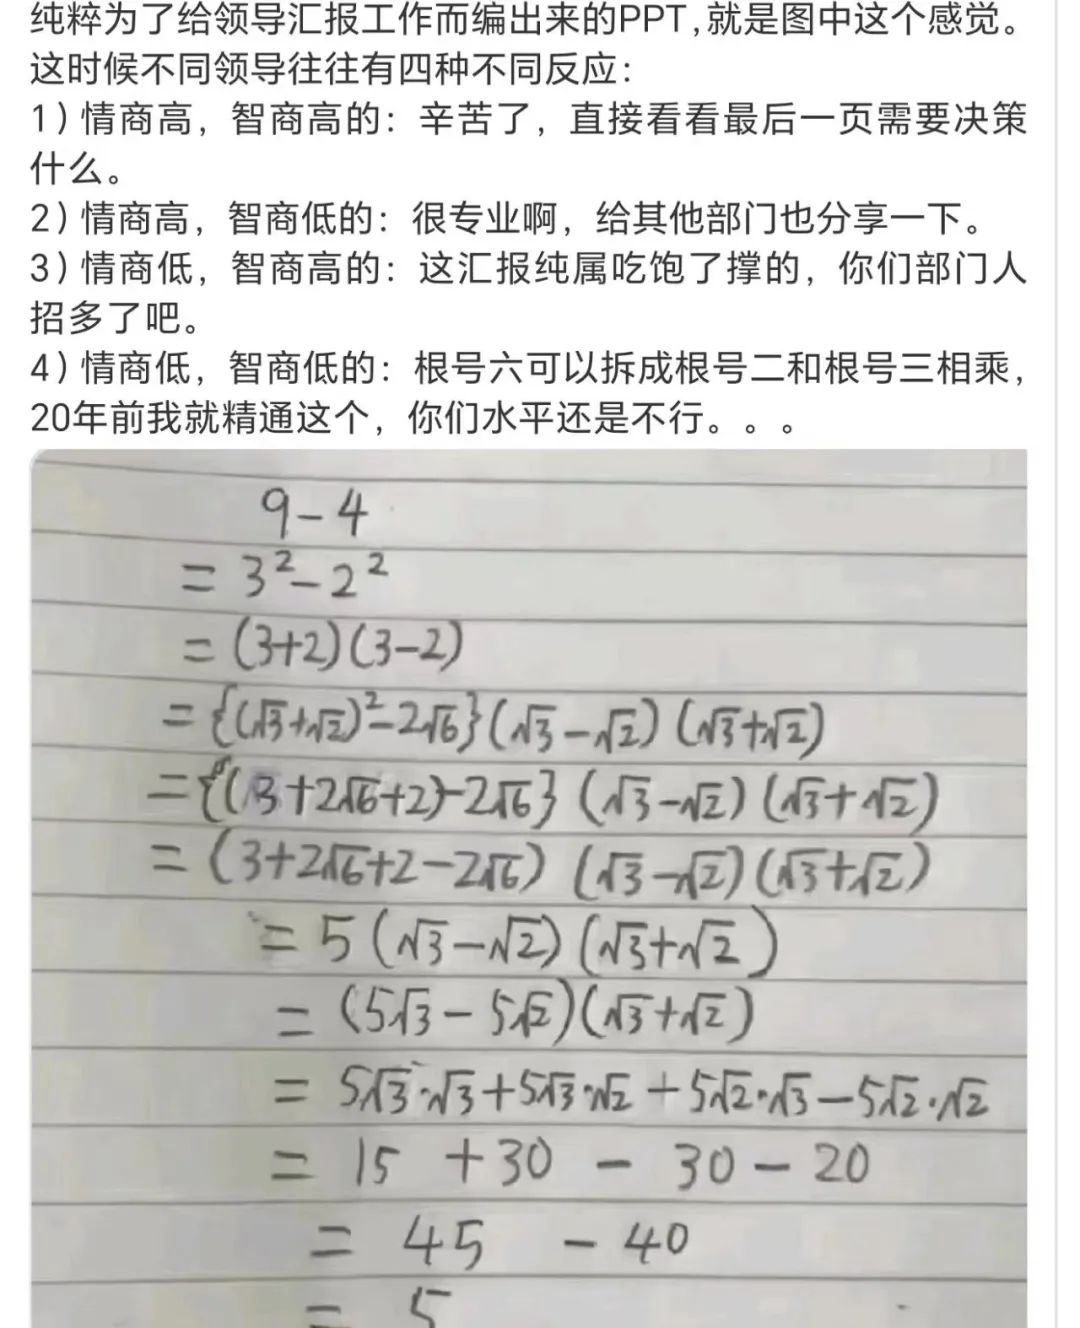 纯粹为了给领导汇报工作而编出来的PPT,就是图中这个感觉。
这时候不同领导往往有四种不同反应：
1）情商高，智商高的：辛苦了，直接看看最后一页需要决策
什么。
2）情商高，智商低的：很专业啊，给其他部门也分享一下。
3）情商低，智商高的：这汇报纯属吃饱了撑的，你们部门人
招多了吧。
4）情商低，智商低的：根号六可以拆成根号二和根号三相乘，
20年前我就精通这个，你们水平还是不行。。。
9-4
= 3²-2²
= (3+2)(3-2)
= {(√3+√2)²-2√6}(√3-√2)(√3+√2)
= {(3+2√6+2)-2√6}(√3-√2)(√3+√2)
= (3+2√6+2-2√6)(√3-√2)(√3+√2)
= 5(√3-√2)(√3+√2)
= (5√3-5√2)(√3+√2)
= 5√3·√3+5√3·√2+5√2·√3-5√2·√2
= 15 +30 - 30-20
= 45 - 40
= 5